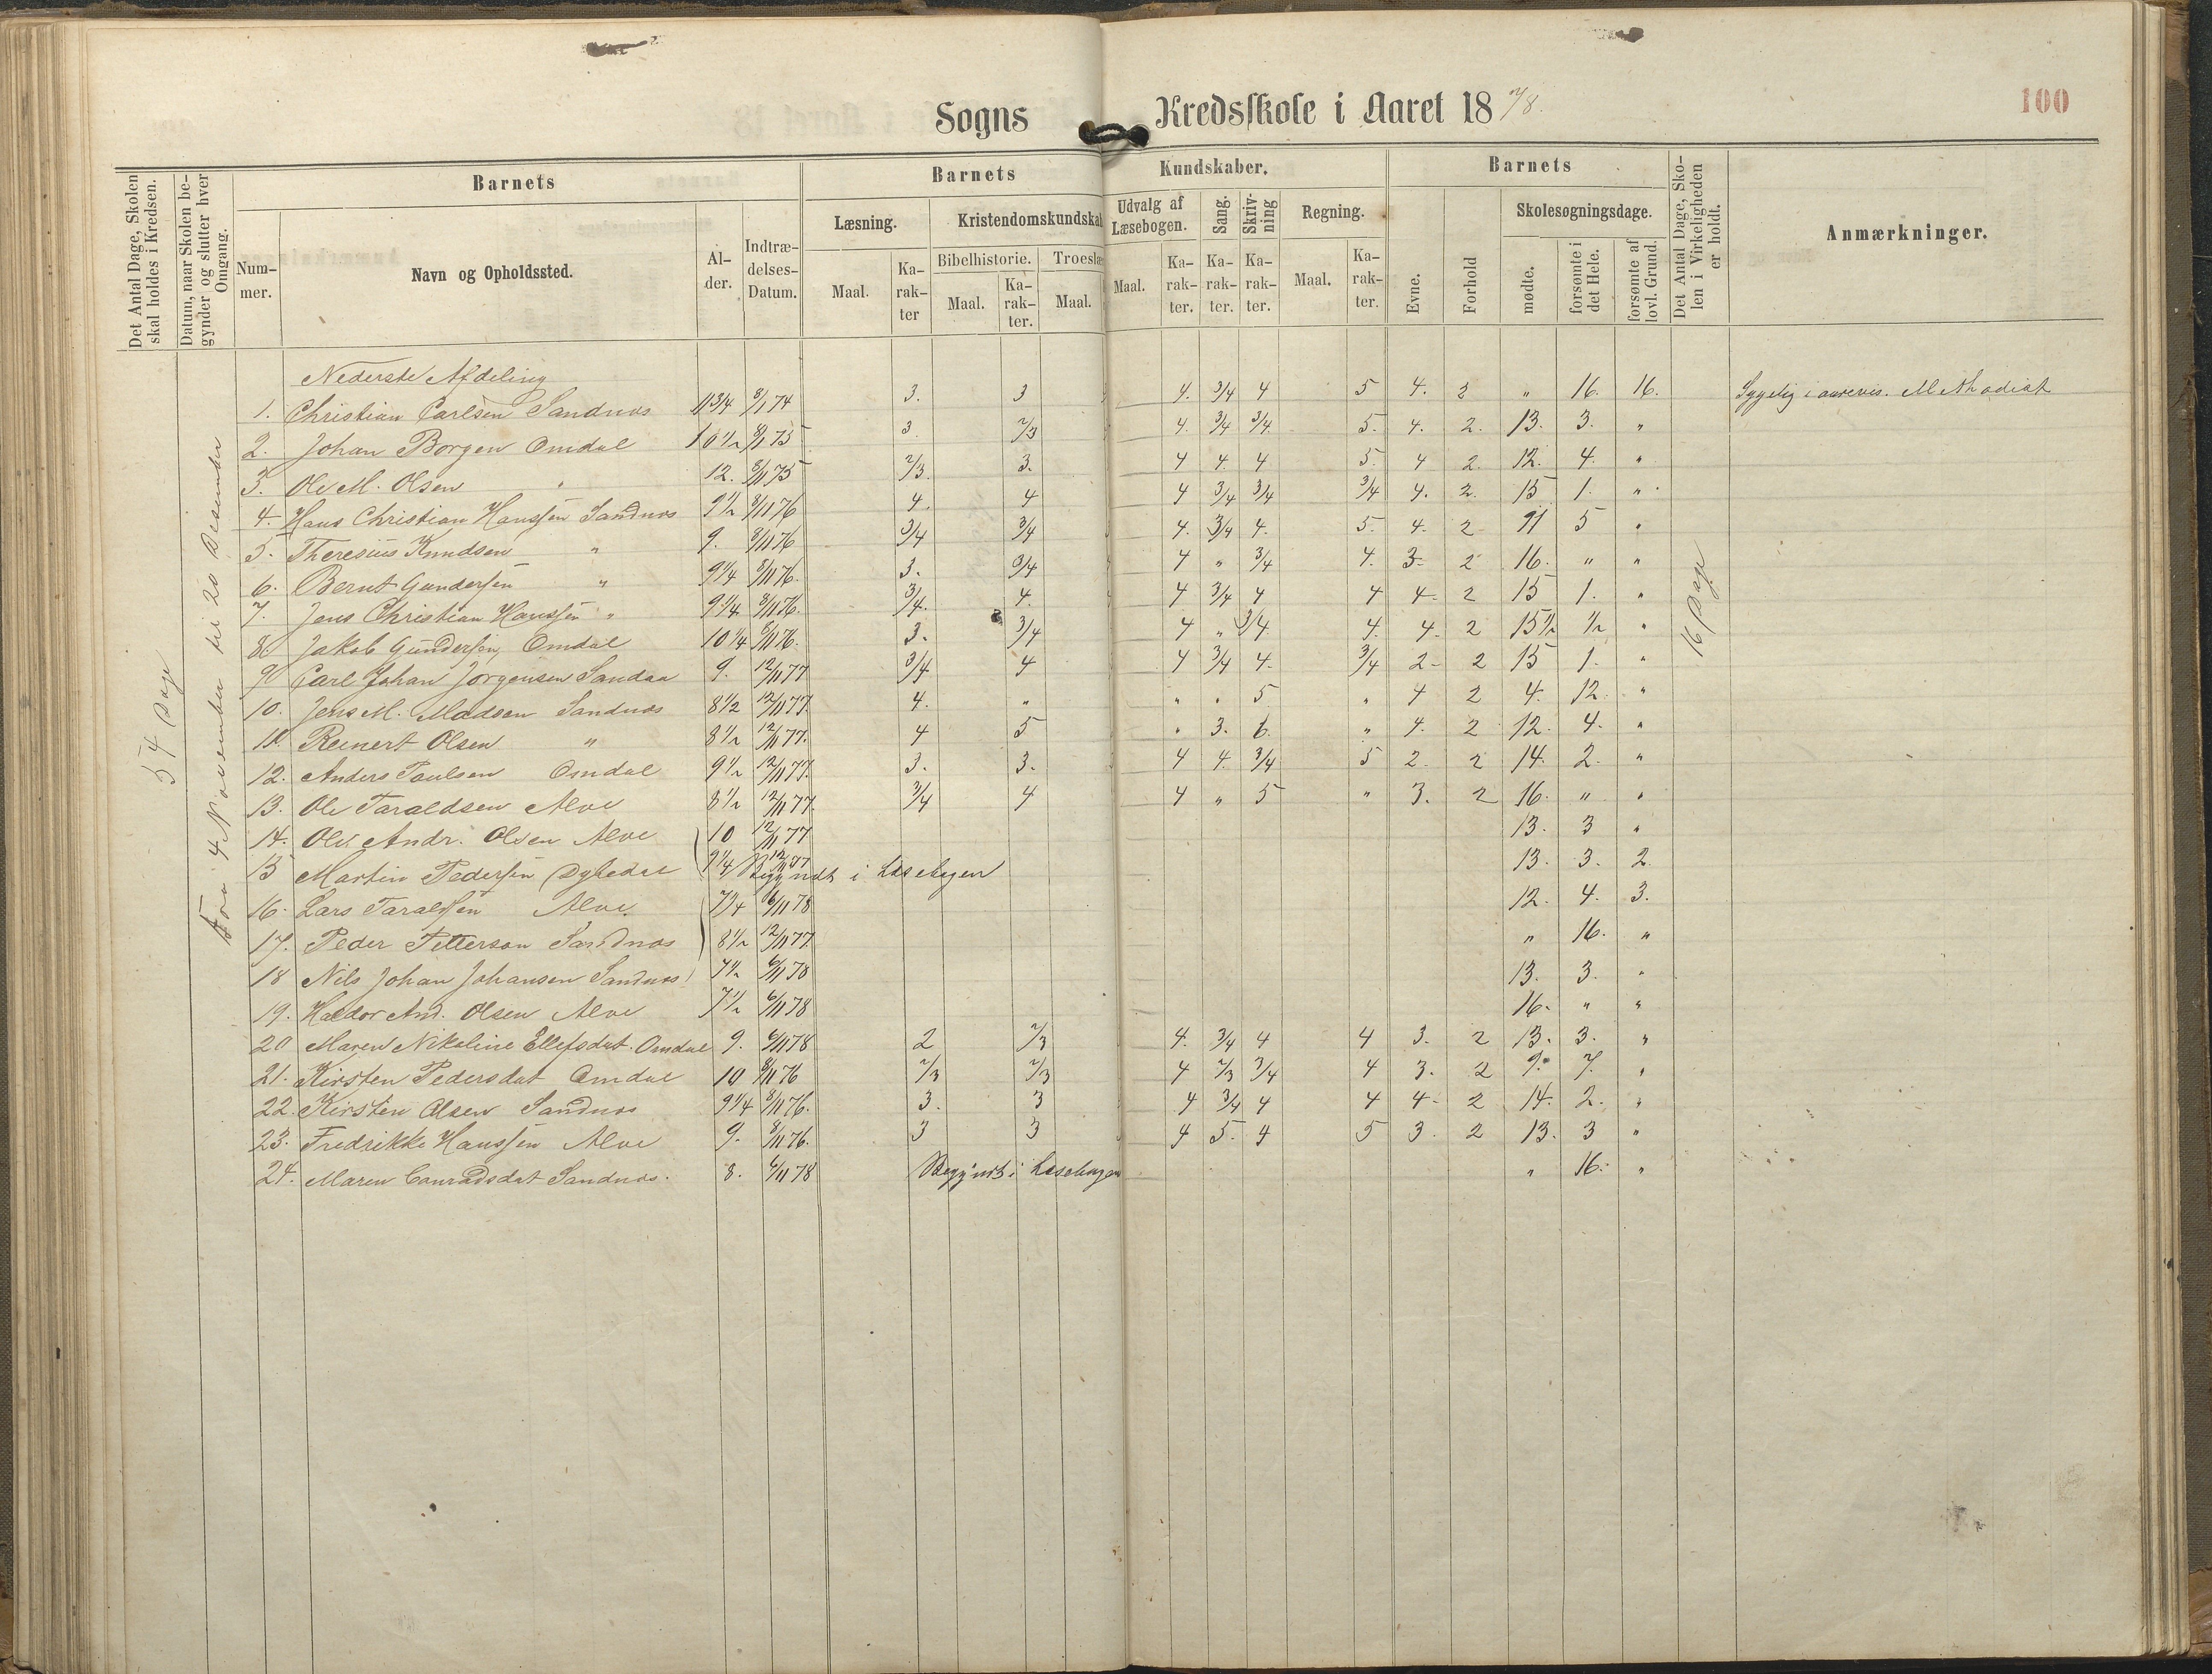 Sogns Kredsskole i Aaret 18 7/8.
100
Det Antal Dage, Skolen skal holdes i Kredsen.
Datum, naar Skolen begynder og slutter hver Omgang.
Barnets
Nummer.
Navn og Opholdssted.
Alder.
Indtrædelses-Datum.
Barnets Kundskaber.
Læsning.
Maal.
Karakter
Kristendomskundskab
Bibelhistorie.
Maal.
Karakter.
Troeslæ
Maal.
Udvalg af Læsebogen.
Maal.
Karakter.
Sang.
Karakter.
Skrivning
Karakter.
Regning.
Maal.
Karakter.
Barnets
Evne.
Forhold
Skolesøgningsdage.
mødte.
forsømte i det Hele.
forsømte af lovl. Grund.
Det Antal Dage, Skolen i Virkeligheden er holdt.
Anmærkninger.
54 Dage
Fra 4 November til 20 Desember
16 Dage
Nederste Afdeling
1. Christian Carlsen Sandnes 11 3/4 8/1 74 3. 3 4. 3/4 4 5 4. 2 " 16. 16. Sygelig Methodist
2. Johan Borgen Omdal 10 1/2 8/1 75 3. 2/3 4. 3/4 3/4 5. 4. 2. 13. 3. "
3. Ole M. Olsen " 12. 8/11 75 2/3. 3. 4 4. 4 5. 4 2. 12. 4. "
4. Hans Christian Hanssen Sandnes 9 1/2 8/11 76 4. 4 4 3/4 3/4 3/4 4. 2. 15 1. "
5. Theresius Knudsen " 9. 8/11 76 3/4 3/4 4. 3/4 4. 5. 4. 2 11 5 "
6. Bernt Gundersen " 9 1/4 8/11 76. 3. 3/4 4 " 3/4 4. 3. 2 16. " "
7. Jens Christian Hanssen " 9 1/4 8/11 76. 3/4. 4. 4 3/4 4 4 4. 2 15 1. "
8. Jakob Gundersen, Omdal 10 1/4 8/11 76. 3. 3/4 4 " 3/4 4. 4. 2 15 1/2 1/2 "
9 Carl Johan Jørgensen Sandaa 9. 12/11 77 3/4 4 4 3/4 4. 3/4 2. 2 15 1. "
10. Jens M. Madsen Sandnes 8 1/2 12/11 77. 4. " " " 5 " 4 2 4. 12. "
11. Reinert Olsen " 8 1/2 12/11 77. 4 5 " 3. 6. " 4. 2 12. 4. "
12. Anders Paulsen Omdal 9 1/2 12/11 77. 3. 3. 4 4. 3/4 5 2. 2 14. 2. "
13. Ole Taraldsen Alve 8 1/2 12/11 77. 3/4 4 4 " 5 " 3. 2 16. " "
14. Ole Andr. Olsen Alve 10 12/11 77 13. 3 "
15 Martin Pedersen Dybedal 9 1/4 12/11 77 Begyndt i Læsebogen 13. 3. 2.
16. Lars Taraldsen Alve. 7 1/4 6/11 78 12. 4. 3.
17. Peder Petterson Sandnes 8 1/2 12/11 77. " 16. "
18 Nils Johan Johansen Sandnes 7 1/2 6/11 78 13. 3. "
19. Haldor And. Olsen Alve 7 1/2 6/11 78 16. " "
20 Maren Nikoline Ellefsdat. Omdal 9. 6/11 78 2 2/3 4. 3/4 4 4 3. 2 13. 3. "
21. Kirsten Pedersdat Omdal 10 8/11 76 2/3 2/3 4 2/3 3/4 4 3. 2 9. 7. "
22. Kirsten Olsen Sandnes 9 1/4 8/11 76. 3. 3 4 3/4 4 4 4. 2 14. 2. "
23. Fredrikke Hanssen Alve 9. 8/11 76. 3 3 4 5. 4 5 3. 2 13. 3 "
24. Maren Conradsdat Sandnes. 8. 6/11 78 Begyndt i Læsebogen " 16. "